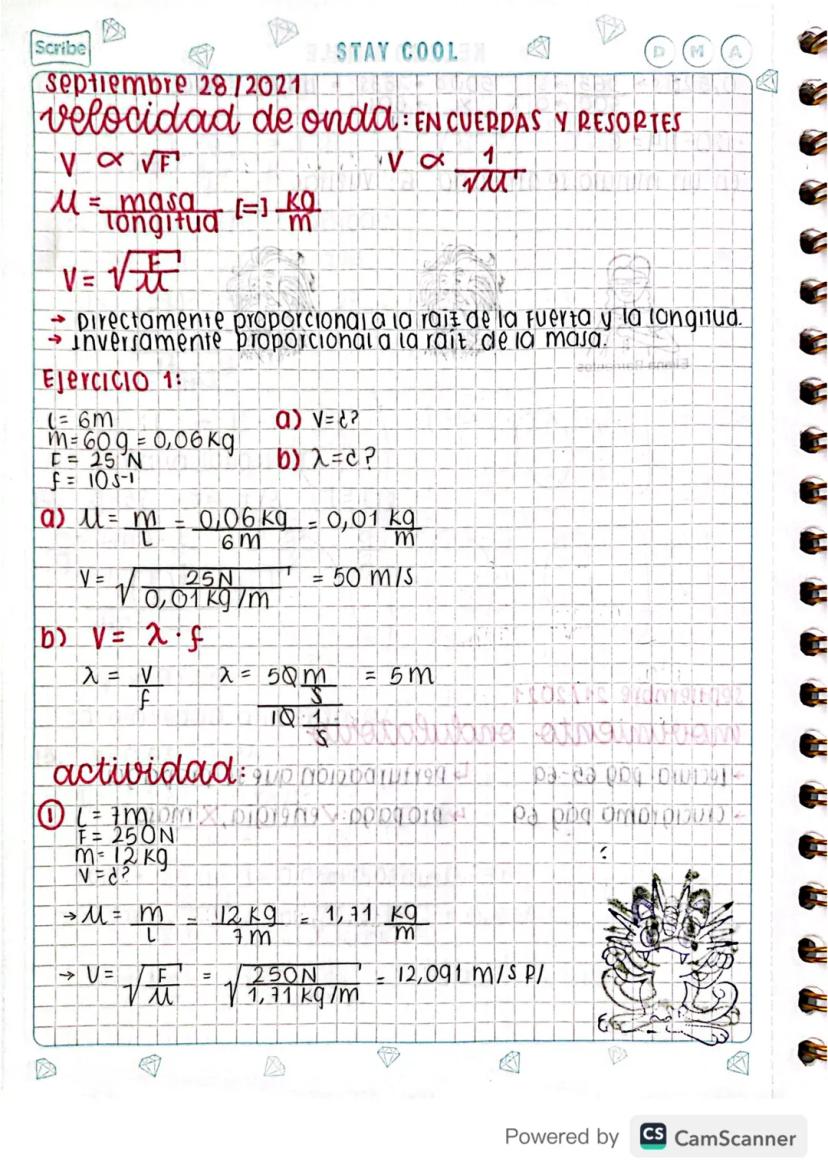 Scribe
STAY COOL
D M A
septiembre 28/2021
velocidad de onda: EN CUERDAS Y RESORTES
V ∝ √F V ∝ 1/√μ
μ = masa/longitud [=] kg/m
V = √(F/μ)
→ Directamente proporcional a la raiz de la Fuerza y la longitud.
→ Inversamente proporcional a la raiz de la masa.
Ejercicio 1:
l = 6m a) V=¿?
m= 60g = 0,06 Kg
F = 25 N b) λ=¿?
f = 10s⁻¹
a) μ = m/L = 0,06 kg/6m = 0,01 kg/m
V = √(25N/0,01 kg/m) = 50 m/s
b) V = λ · f
λ = V/f λ = 50 m/s / 10 1/s = 5m
actividad:
① L = 7m
F = 250N
m= 12 kg
V=¿?
→ μ = m/L = 12 kg/7m = 1,71 kg/m
→ V = √(F/μ) = √(250N/1,71 kg/m) = 12,091 m/s P/
Powered by CS CamScanner